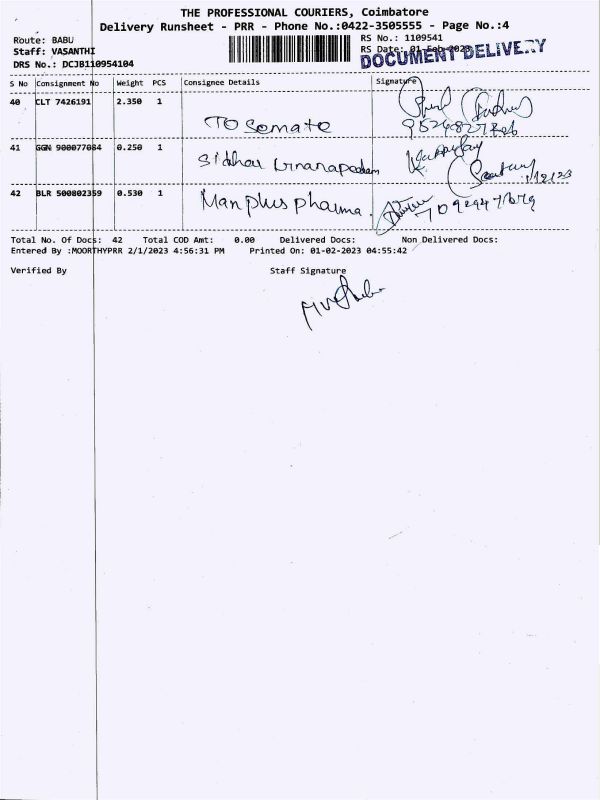 THE PROFESSIONAL COURIERS, Coimbatore
Delivery Runsheet - PRR - Phone No.:0422-3505555 - Page No.:4
Route: BABU
Staff: VASANTHI
DRS No.: DCJB110954104
RS No.: 1109541
RS Date: 01-Feb-2023
DOCUMENT DELIVERY
S No Consignment No Weight PCS Consignee Details Signature
40 CLT 7426191 2.350 1
TO Somato
41 GGN 900077084 0.250 1
Siddhar
42 BLR 500802359 0.530 1
Man plus pharma.
Total No. Of Docs: 42 Total COD Amt: 0.00 Delivered Docs: Non Delivered Docs:
Entered By :MOORTHYPRR 2/1/2023 4:56:31 PM Printed On: 01-02-2023 04:55:42
Verified By Staff Signature